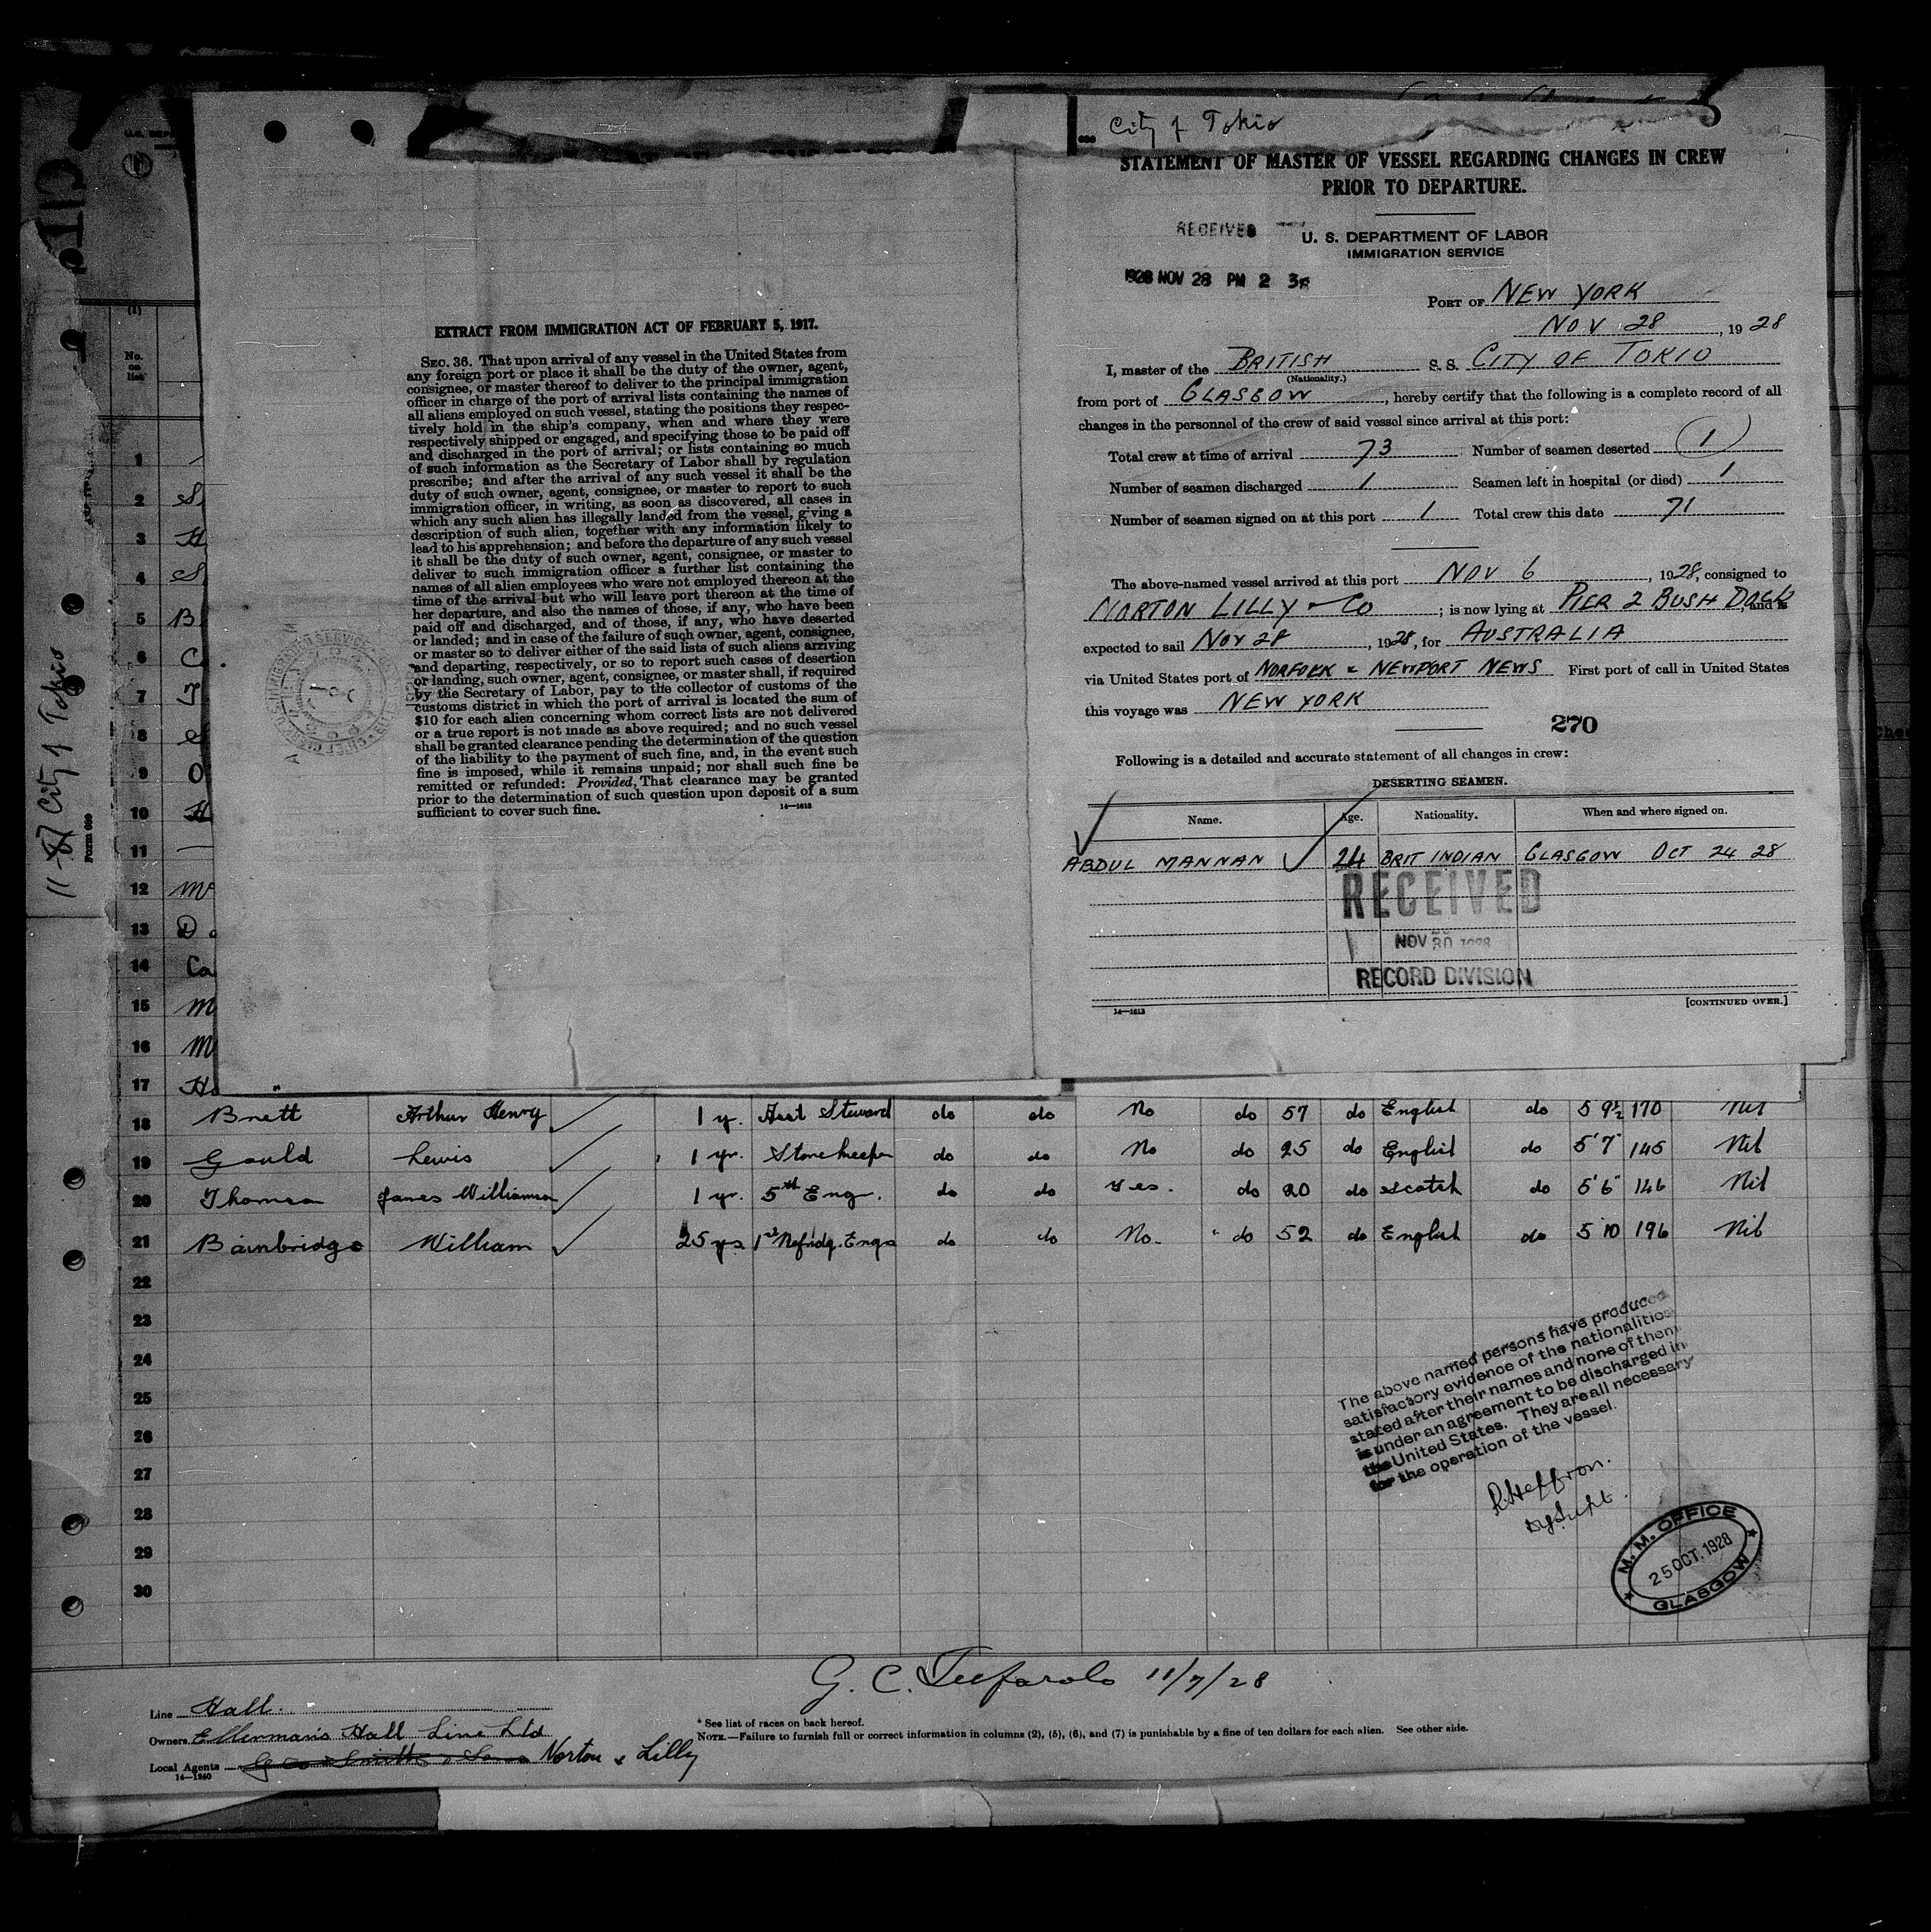 City of Tokio
STATEMENT OF MASTER OF VESSEL REGARDING CHANGES IN CREW
PRIOR TO DEPARTURE.
RECEIVED
U. S. DEPARTMENT OF LABOR
IMMIGRATION SERVICE
1928 NOV 28 PM 2
PORT OF NEW YORK
NOV 28, 1928
I, master of the BRITISH S. S. CITY OF TOKIO
(Nationality.)
from port of GLASGOW, hereby certify that the following is a complete record of all
changes in the personnel of the crew of said vessel since arrival at this port:
Total crew at time of arrival 73 Number of seamen deserted 1
Number of seamen discharged 1 Seamen left in hospital (or died) 1
Number of seamen signed on at this port 1 Total crew this date 71
The above-named vessel arrived at this port NOV 6, 1928, consigned to
NORTON LILLY & CO; is now lying at PIER 2 BUSH DOCK, and is
expected to sail NOV 28, 1928, for AUSTRALIA
via United States port of NORFOLK & NEWPORT NEWS First port of call in United States
this voyage was NEW YORK
270
Following is a detailed and accurate statement of all changes in crew:
DESERTING SEAMEN.
Name. Age. Nationality. When and where signed on.
ABDUL MANNAN 24 BRIT INDIAN GLASGOW OCT 24 28
RECEIVED
NOV 30 1928
RECORD DIVISION
[CONTINUED OVER.]
14—1613
EXTRACT FROM IMMIGRATION ACT OF FEBRUARY 5, 1917.
SEC. 36. That upon arrival of any vessel in the United States from
any foreign port or place it shall be the duty of the owner, agent,
consignee, or master thereof to deliver to the principal immigration
officer in charge of the port of arrival lists containing the names of
all aliens employed on such vessel, stating the positions they respec-
tively hold in the ship's company, when and where they were
respectively shipped or engaged, and specifying those to be paid off
and discharged in the port of arrival; or lists containing so much
of such information as the Secretary of Labor shall by regulation
prescribe; and after the arrival of any such vessel it shall be the
duty of such owner, agent, consignee, or master to report to such
immigration officer, in writing, as soon as discovered, all cases in
which any such alien has illegally landed from the vessel, giving a
description of such alien, together with any information likely to
lead to his apprehension; and before the departure of any such vessel
it shall be the duty of such owner, agent, consignee, or master to
deliver to such immigration officer a further list containing the
names of all alien employees who were not employed thereon at the
time of the arrival but who will leave port thereon at the time of
her departure, and also the names of those, if any, who have been
paid off and discharged, and of those, if any, who have deserted
or landed; and in case of the failure of such owner, agent, consignee,
or master so to deliver either of the said lists of such aliens arriving
and departing, respectively, or so to report such cases of desertion
or landing, such owner, agent, consignee, or master shall, if required
by the Secretary of Labor, pay to the collector of customs of the
customs district in which the port of arrival is located the sum of
$10 for each alien concerning whom correct lists are not delivered
or a true report is not made as above required; and no such vessel
shall be granted clearance pending the determination of the question
of the liability to the payment of such fine, and, in the event such
fine is imposed, while it remains unpaid; nor shall such fine be
remitted or refunded: Provided, That clearance may be granted
prior to the determination of such question upon deposit of a sum
sufficient to cover such fine.
14—1613
(1)
No.
on
list
1
2 S
3 H
4 S
5 B
6 C
7 T
8
9 O
10 H
11
12 M
13 D
14 Ca
15 M
16 M
17 Ho
18 Brett Arthur Henry 1 y. Asst Steward do do No do 57 do English do 5 9½ 170 Nil
19 Gould Lewis 1 yr. Storekeeper do do No do 25 do English do 5'7" 145 Nil
20 Thomson James Williamson 1 yr. 5th Eng. do do Yes. do 20 do Scotch do 5'6" 146 Nil
21 Bainbridge William 25 yrs 1st Refridg. Engr do do No. do 52 do English do 5 10 196 Nil
22
23
24
25
26
27
28
29
30
11-8/ City of Tokio
Form 689
The above named persons have produced
satisfactory evidence of the nationalities
stated after their names and none of them
is under an agreement to be discharged in
the United States. They are all necessary
for the operation of the vessel.
R Heffron.
Dy Supt.
M. M. OFFICE
25 OCT. 1928
GLASGOW
G. C. 11/7/28
Line Hall.
Owners Ellerman's Hall Line Ltd
Local Agents Norton & Lilly
14—1240
* See list of races on back hereof.
NOTE.—Failure to furnish full or correct information in columns (2), (5), (6), and (7) is punishable by a fine of ten dollars for each alien. See other side.